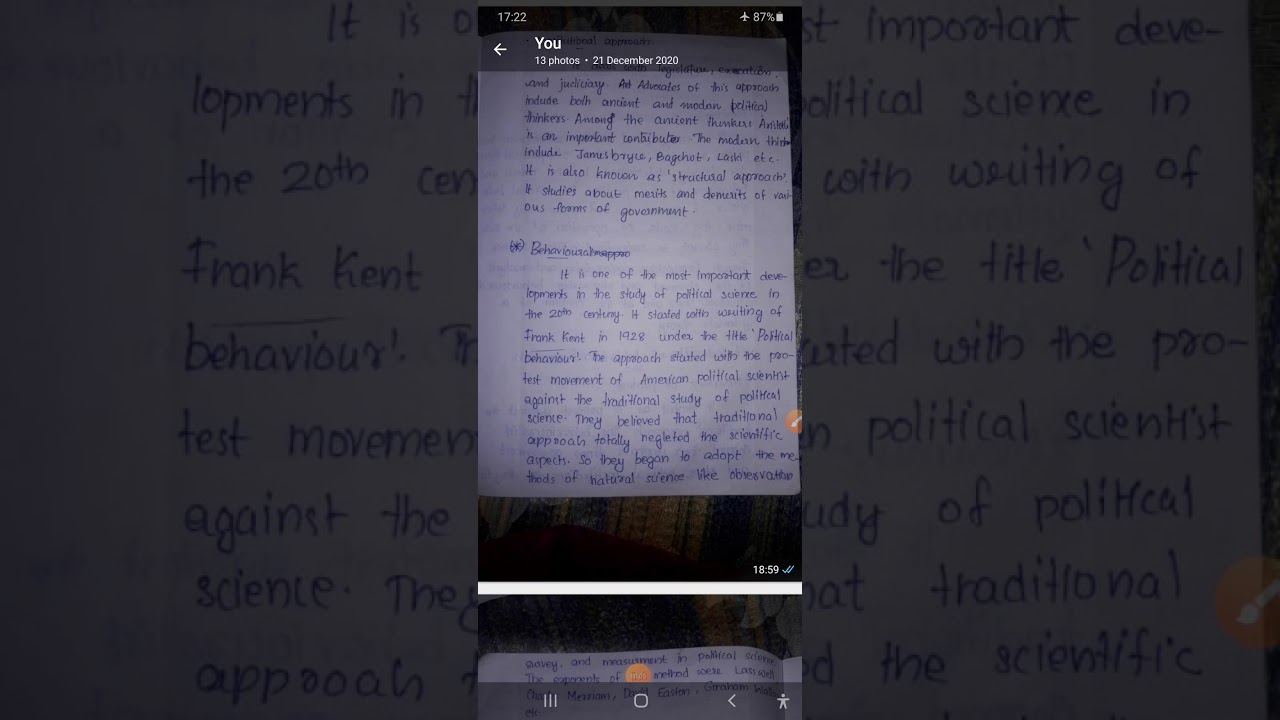 17:22
87%
You
13 photos • 21 December 2020
approach.
legislature,
and judiciary. Advocates of this approach
include both ancient and modan political
thinkers. Among the ancient thinkers
is an important contributor. The modern
include James bryce, Bagehot, Laski etc.
It is also known as 'structural approach'.
It studies about merits and demerits of vari-
ous forms of government.
Behavioural
It is one of the most important deve-
lopments in the study of political science in
the 20th century. It started with writing of
Frank Kent in 1928 under the title 'Political
behaviour'. The approach started with the pro-
test movement of American political scientist
against the traditional study of political
science. They believed that traditional
approah totally negleted the scientific
aspects. So they began to adopt the me-
thods of natural science like observation
18:59
survey, and measurment in political science
The exponents of method were Lasswell
Merriam, David Easton, Graham
etc.